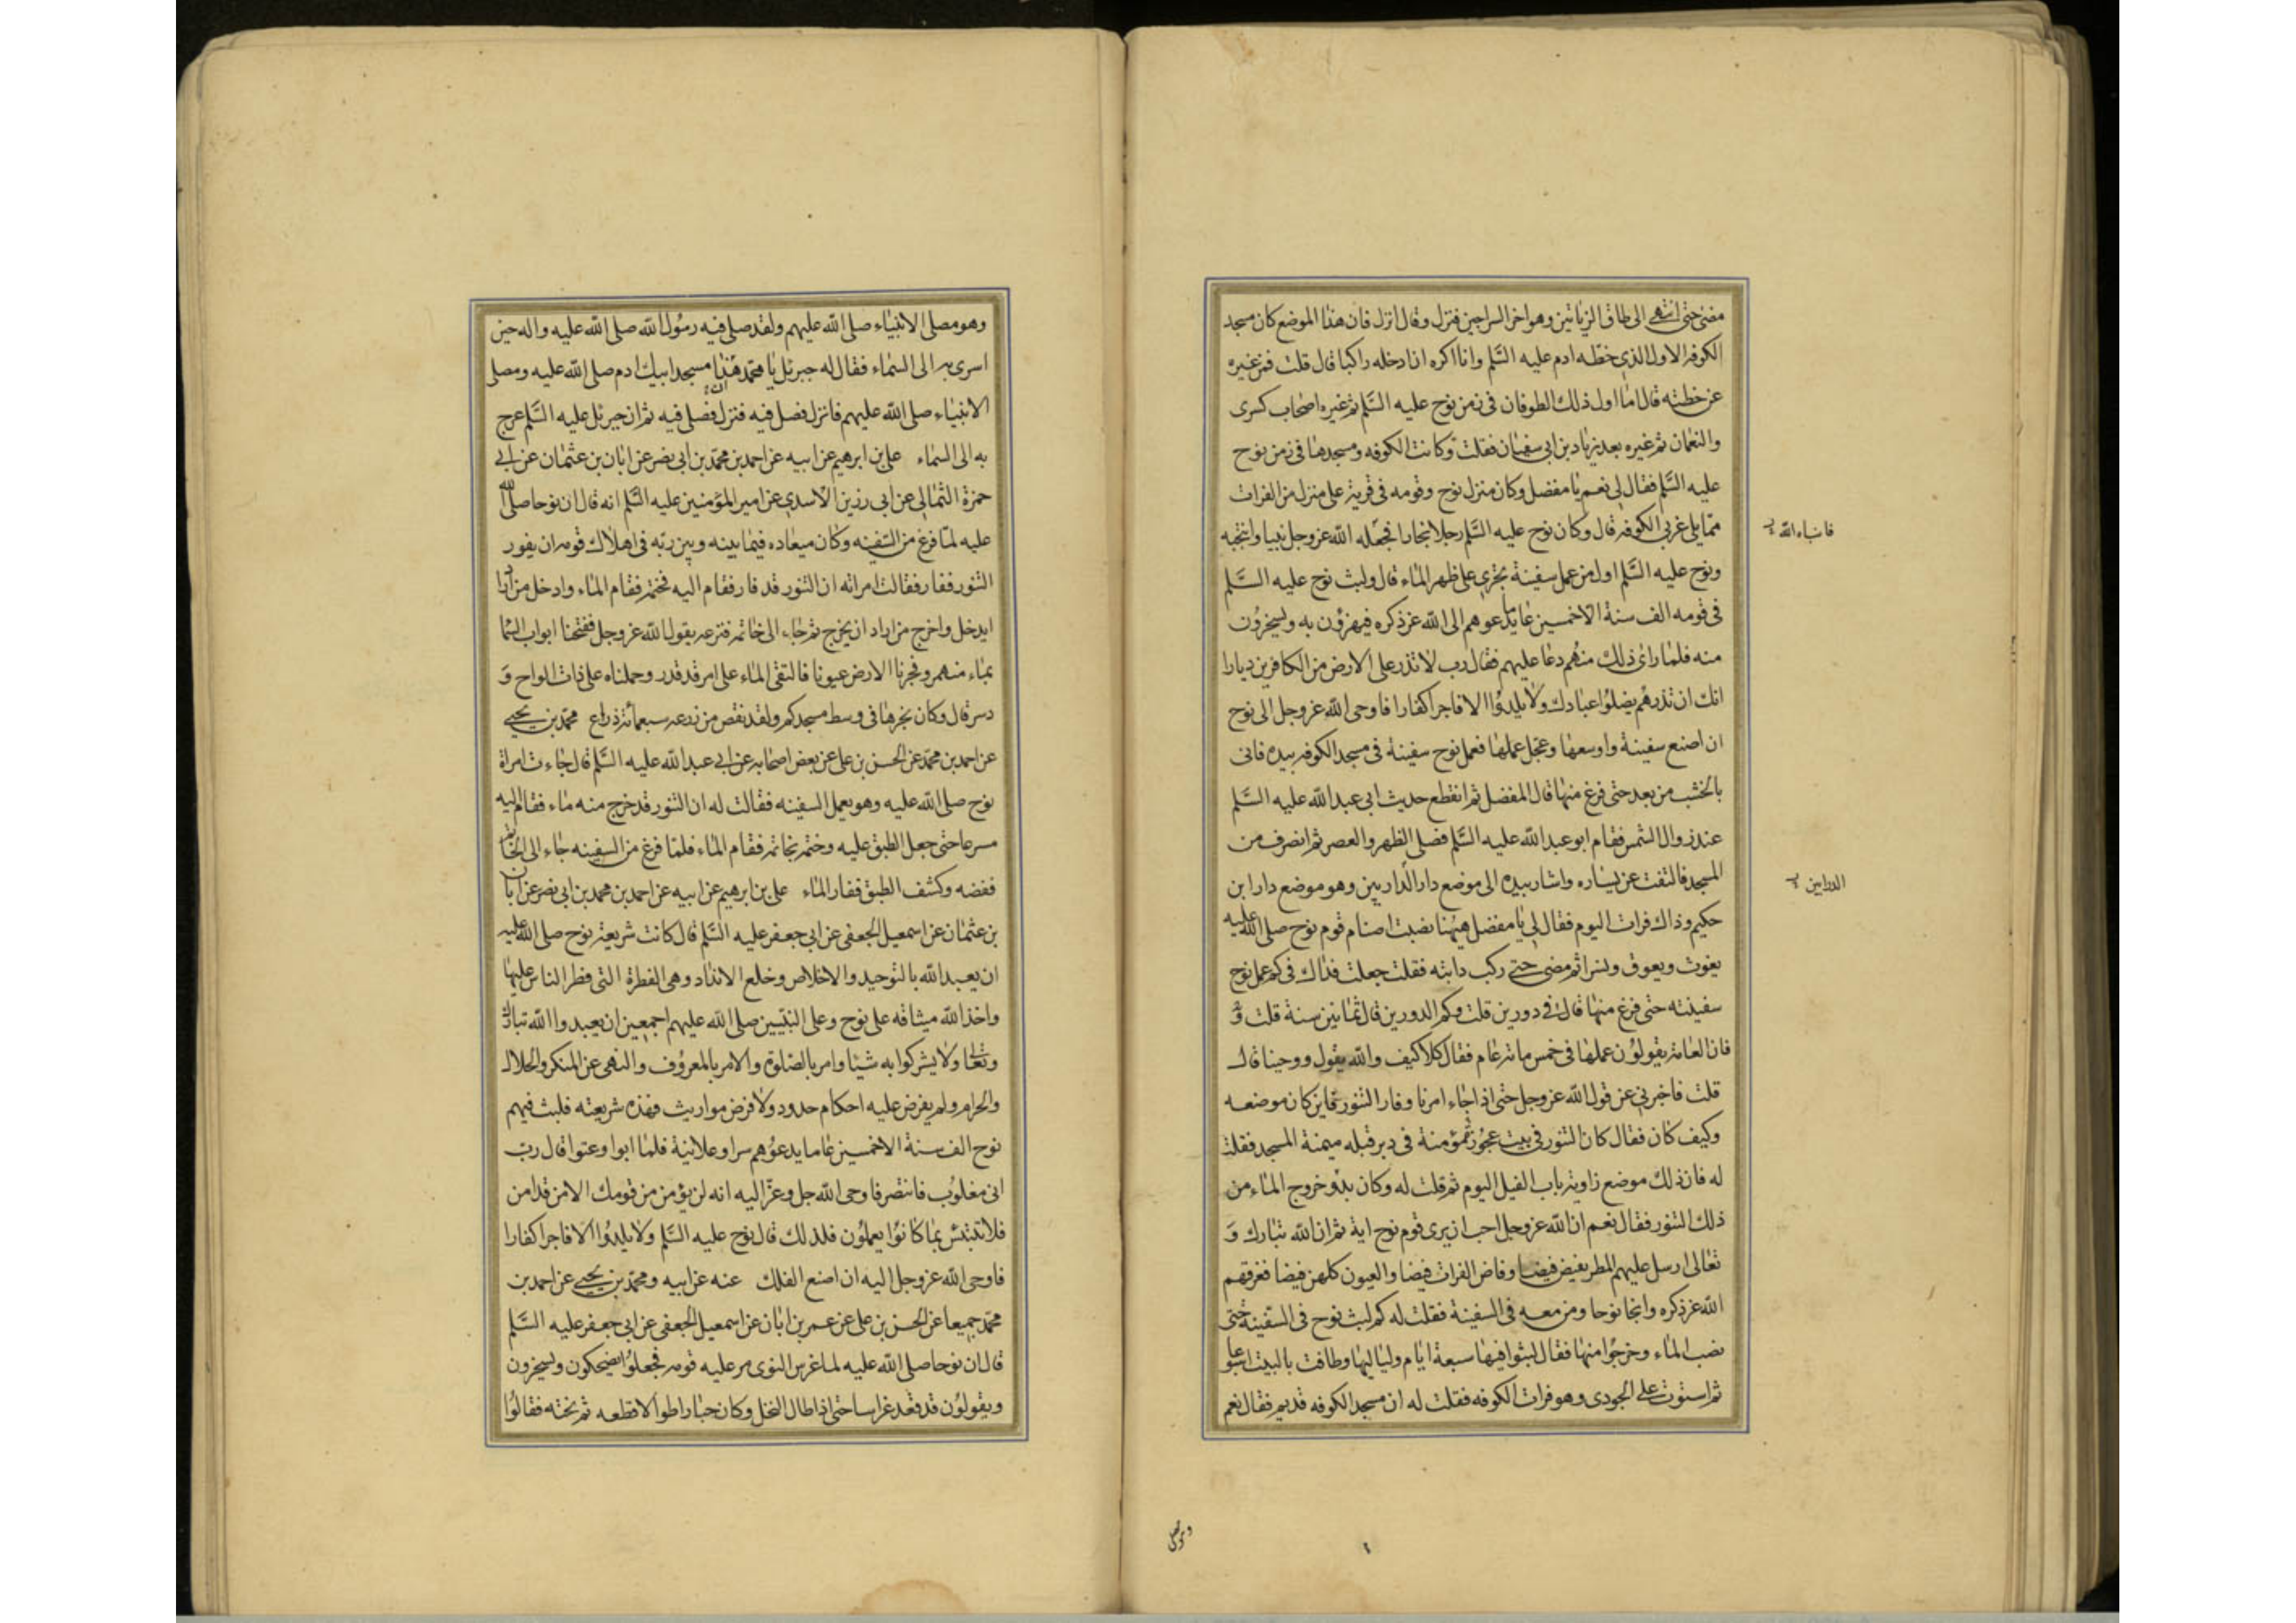 مضى حتى انتهى الى طاق الزياتين وهو اخر السراجين فنزل وقال انزل فان هذا الموضع كان مسجد
الكوفه الاول الذى خطه ادم عليه السَّلم وانا اكره ان ادخله راكبا قال قلت فمن غيره
عن خطته قال اما اول ذلك الطوفان فى زمن نوح عليه السَّلم ثم غيره اصحاب كسرى
والنعمان ثم غيره بعد زياد بن ابى سفيان فقلت وكانت الكوفه ومسجدها فى زمن نوح
عليه السَّلم فقال لى نعم يا مفضل وكان منزل نوح وقومه فى قرية على منزل من الفرات
مما يلى غربى الكوفه قال وكان نوح عليه السَّلم رجلا نجارا فجعله الله عز وجل نبيا وانتجبه
فانباه الله
ونوح عليه السَّلم اول من عمل سفينة تجرى على ظهر الماء قال ولبث نوح عليه السَّلم
فى قومه الف سنة الا خمسين عاما يدعوهم الى الله عز ذكره فيهزؤن به ويسخرون
منه فلما راى ذلك منهم دعا عليهم فقال رب لا تذر على الارض من الكافرين ديارا
انك ان تذرهم يضلوا عبادك ولا يلدوا الا فاجرا كفارا فاوحى الله عز وجل الى نوح
ان اصنع سفينة واوسعها وعجل عملها فعمل نوح سفينة فى مسجد الكوفه بيده فاتى
بالخشب من بعد حتى فرغ منها قال المفضل ثم انقطع حديث ابى عبد الله عليه السَّلم
عند زوال الشمس فقام ابو عبد الله عليه السَّلم فصلى الظهر والعصر ثم انصرف من
المسجد فالتفت عن يساره واشار بيده الى موضع دار الداريين وهو موضع دار ابن
الدرابين
حكيم وذاك فرات اليوم فقال لى يا مفضل هيهنا نصبت اصنام قوم نوح صلى الله عليه
يغوث ويعوق ونسرا ثم مضى حتى ركب دابته فقلت جعلت فداك فى كم عمل نوح
سفينته حتى فرغ منها قال فى دورين قلت وكم الدورين قال ثمانين سنة قلت و
فان العامة يقولون عملها فى خمس مائة عام فقال كلا كيف والله يقول ووحينا قال
قلت فاخبرنى عن قول الله عز وجل حتى اذا جاء امرنا وفار التنور فاين كان موضعه
وكيف كان فقال كان التنور فى بيت عجوز مؤمنة فى دبر قبله ميمنة المسجد فقلت
له فان ذلك موضع زاوية باب الفيل اليوم ثم قلت له وكان بدؤ خروج الماء من
ذلك التنور فقال نعم ان الله عز وجل احب ان يرى قوم نوح اية ثم ان الله تبارك و
تعالى ارسل عليهم المطر يفيض فيضا وفاض الفرات فيضا والعيون كلهن فيضا فغرقهم
الله عز ذكره وانجا نوحا ومن معه فى السفينة فقلت له كم لبث نوح فى السفينة حتى
نضب الماء وخرجوا منها فقال لبثوا فيها سبعة ايام ولياليها وطافت بالبيت اسبوعا
ثم استوت على الجودى وهو فرات الكوفه فقلت له ان مسجد الكوفه قديم فقال نعم
وهو مصلى
وهو مصلى الانبياء صلى الله عليهم ولقد صلى فيه رسول الله صلى الله عليه واله حين
اسرى به الى السماء فقال له جبرئل يا محمد هذا مسجد ابيك ادم صلى الله عليه ومصلى
الانبياء صلى الله عليهم فانزل فصل فيه فنزل فصلى فيه ثم ان جبرئل عليه السَّلم عرج
به الى السماء على بن ابرهيم عن ابيه عن احمد بن محمد بن ابى نصر عن ابان بن عثمان عن ابى
حمزة الثمالى عن ابى رزين الاسدى عن امير المؤمنين عليه السَّلم انه قال ان نوحا صلى الله
عليه لما فرغ من السفينه وكان ميعاده فيما بينه وبين ربه فى اهلاك قومه ان يفور
التنور ففار فقالت امراته ان التنور قد فار فقام اليه فختمه فقام الماء وادخل من اراد
ان يدخل واخرج من اراد ان يخرج ثم جاء الى خاتمه فنزعه يقول الله عز وجل ففتحنا ابواب السما
بماء منهمر وفجرنا الارض عيونا فالتقى الماء على امر قد قدر وحملناه على ذات الواح و
دسر قال وكان نجرها فى وسط مسجدكم ولقد نقص من ذرعه سبعمائة ذراع محمد بن يحيى
عن احمد بن محمد عن الحسن بن على عن بعض اصحابه عن ابى عبد الله عليه السَّلم قال جاءت امراة
نوح صلى الله عليه وهو يعمل السفينه فقالت له ان التنور قد خرج منه ماء فقام اليه
مسرعا حتى جعل الطبق عليه وختمه بخاتمه فقام الماء فلما فرغ من السفينه جاء الى الخاتم
ففضه وكشف الطبق ففار الماء على بن ابرهيم عن ابيه عن احمد بن محمد بن ابى نصر عن ابان
بن عثمان عن اسمعيل الجعفى عن ابى جعفر عليه السَّلم قال كانت شريعة نوح صلى الله عليه
ان يعبد الله بالتوحيد والاخلاص وخلع الانداد وهى الفطرة التى فطر الناس عليها
واخذ الله ميثاقه على نوح وعلى النبيين صلى الله عليهم اجمعين ان يعبدوا الله تبارك
وتعالى ولا يشركوا به شيئا وامر بالصلوة والامر بالمعروف والنهى عن المنكر والحلال
والحرام ولم يفرض عليه احكام حدود ولا فرض مواريث فهذه شريعته فلبث فيهم
نوح الف سنة الا خمسين عاما يدعوهم سرا وعلانية فلما ابوا وعتوا قال رب
انى مغلوب فانتصر فاوحى الله جل وعز اليه انه لن يؤمن من قومك الا من قد امن
فلا تبتئس بما كانوا يعملون فلذلك قال نوح عليه السَّلم ولا يلدوا الا فاجرا كفارا
فاوحى الله عز وجل اليه ان اصنع الفلك عنه عن ابيه ومحمد بن يحيى عن احمد بن
محمد جميعا عن الحسن بن على عن عمر بن ابان عن اسمعيل الجعفى عن ابى جعفر عليه السَّلم
قال ان نوحا صلى الله عليه لما غرس النوى مر عليه قومه فجعلوا يضحكون ويسخرون
ويقولون قد قعد غراسا حتى اذا طال النخل وكان جبارا طوالا قطعه ثم نحته فقالوا